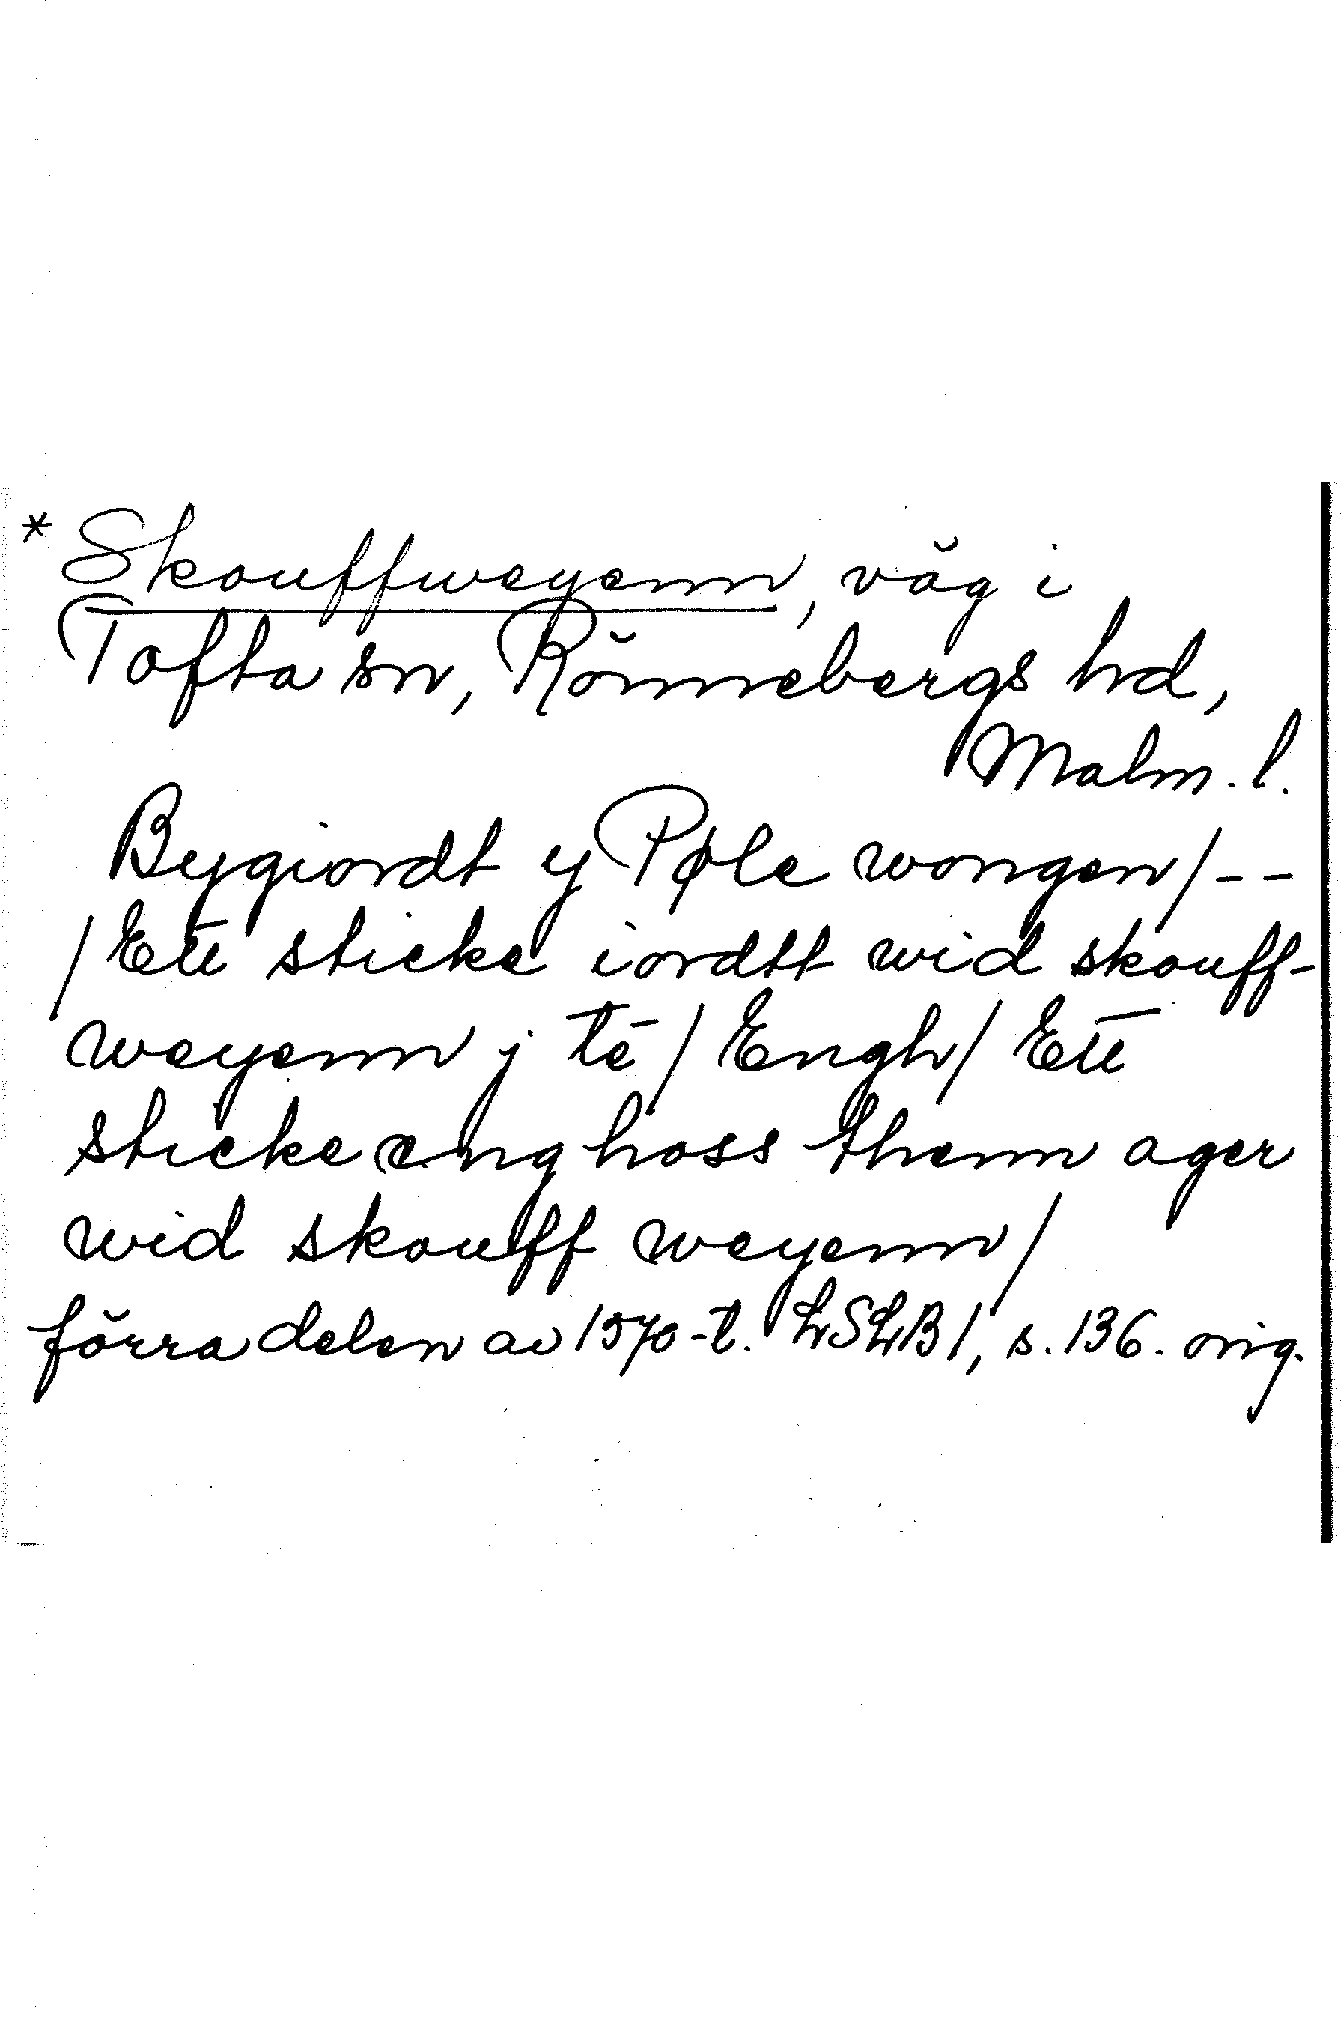 * Skouffweyenn, väg i
Tofta sn, Rönnebergs hd,
Malm. l.
Bygiordt y Pøle wongen / - -
/ Ett sticke iordtt wid skouff-
weyenn j tē / Engh / Ett
sticke eng hoss thenn ager
wid skouff weyenn /
förra delen av 1570-t. LSLB 1, s. 136. orig.